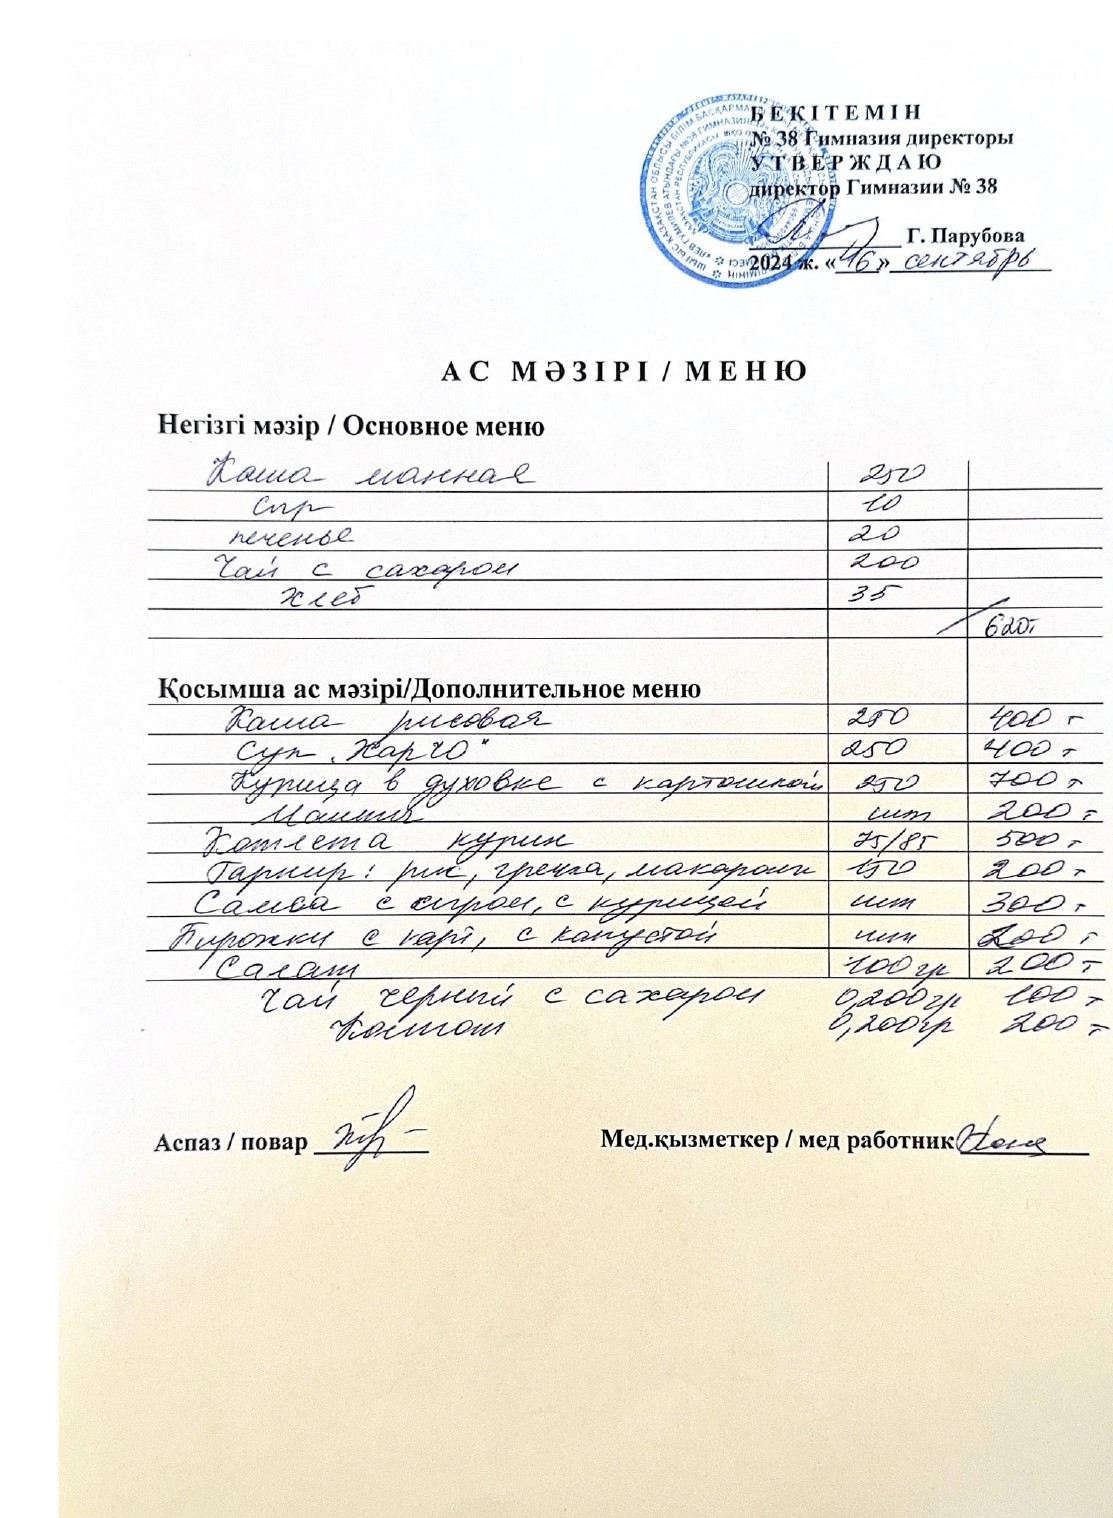 БЕКІТЕМІН
№ 38 Гимназия директоры
УТВЕРЖДАЮ
директор Гимназии № 38
Г. Парубова
2024 ж. «16» сентябрь
АС МӘЗІРІ / МЕНЮ
Негізгі мәзір / Основное меню
Каша манная 250
сыр 10
печенье 20
Чай с сахаром 200
хлеб 35
620т
Қосымша ас мәзірі/Дополнительное меню
Каша рисовая 250 400 т
Суп „Харчо" 250 400 т
Курица в духовке с картошкой 250 700 т
шт 200 т
Котлета курин 75/85 500 т
Гарнир: рис, гречка, макароны 150 200 т
Самса с сыром, с курицей шт 300 т
Пирожки с карт, с капустой шт 200 т
Салат 100 гр 200 т
Чай черный с сахаром 0,200 гр 100 т
Компот 0,200 гр 200 т
Аспаз / повар Мед.қызметкер / мед работник